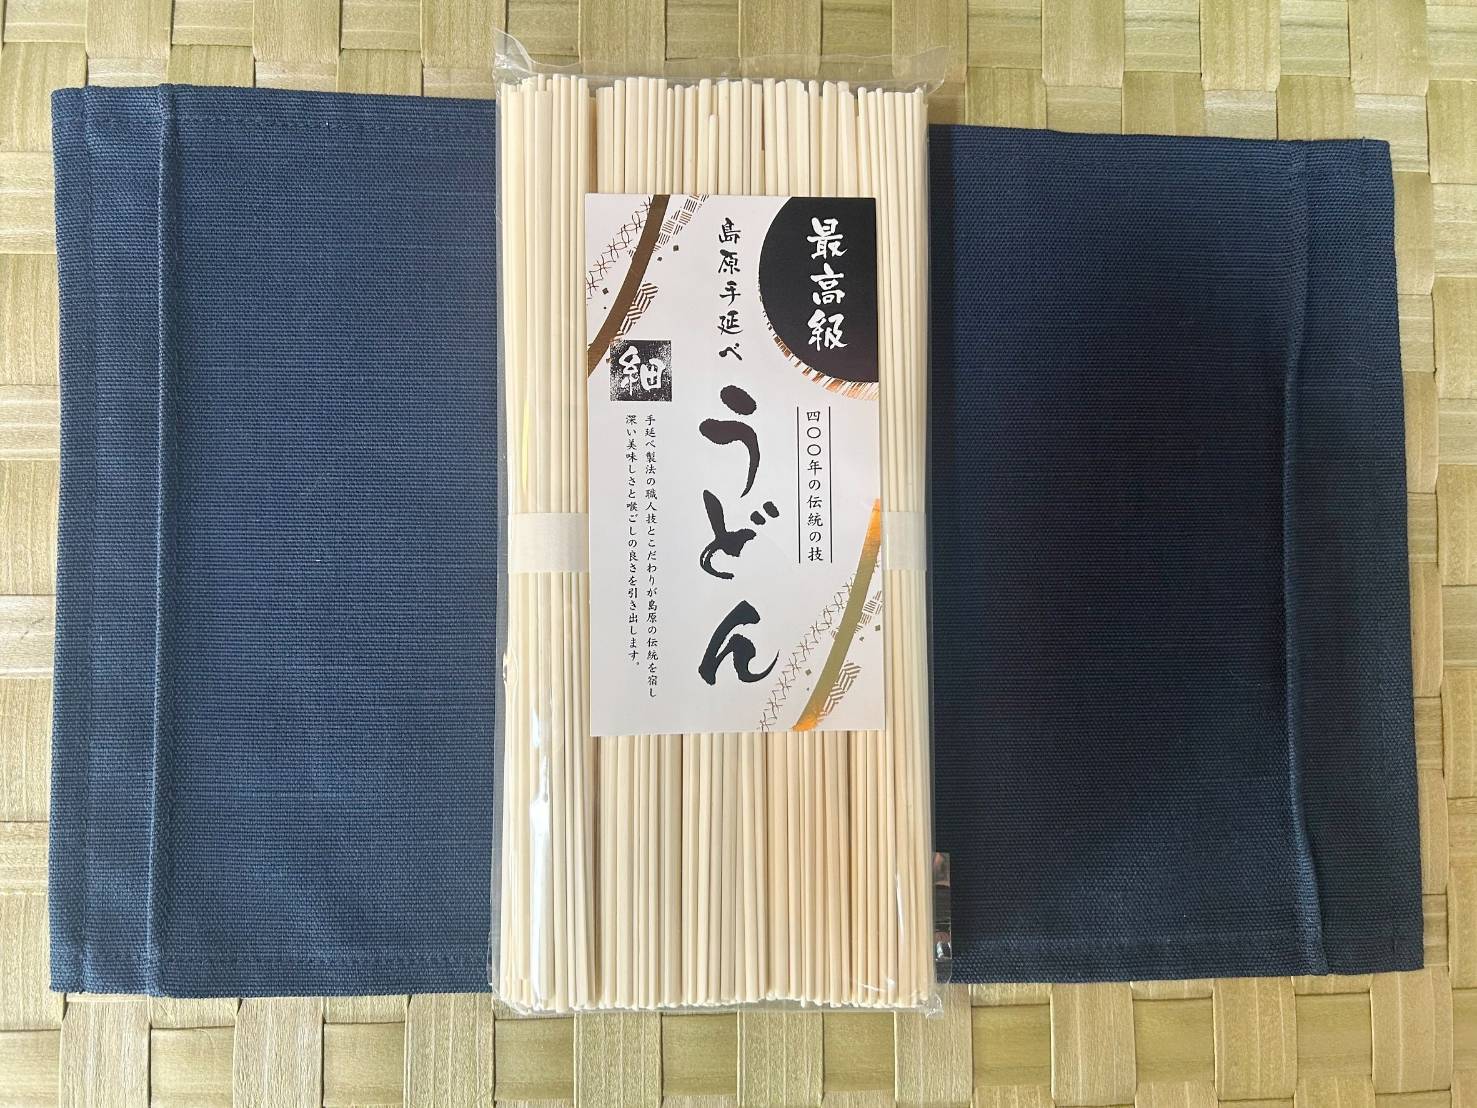 最高級
四〇〇年の伝統の技
島原手延べ
うどん
細
手延べ製法の職人技とこだわりが島原の伝統を宿し
深い美味しさと喉ごしの良さを引き出します。